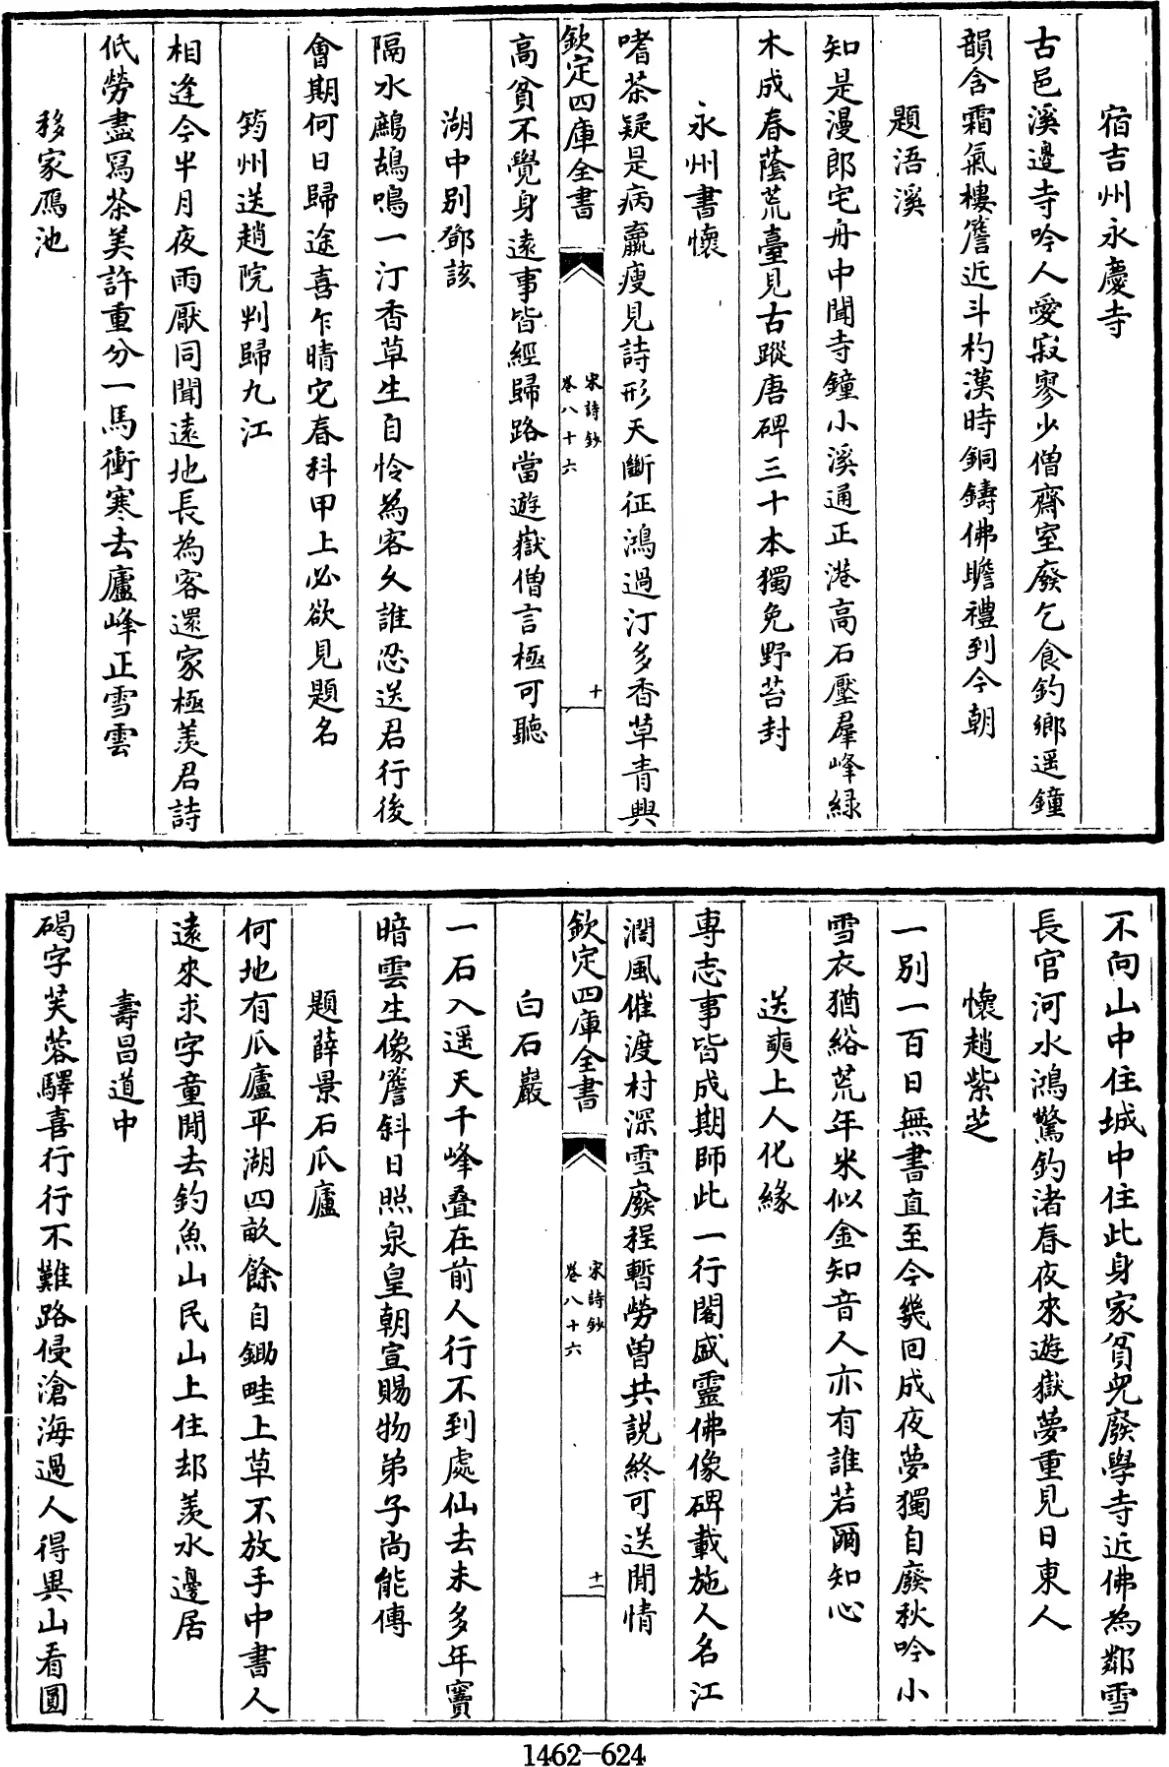 宿吉州永慶寺
古邑溪邊寺吟人愛寂寥少僧齋室廢乞食釣鄉遥鐘
韻含霜氣樓簷近斗杓漢時銅鑄佛瞻禮到今朝
題浯溪
知是漫郎宅舟中聞寺鐘小溪通正港高石壓羣峰緑
木成春蔭荒臺見古蹤唐碑三十本獨免野苔封
永州書懷
嗜茶疑是病羸瘦見詩形天斷征鴻過汀多香草青興
欽定四庫全書
宋詩鈔
卷八十六
十
高貧不覺身遠事皆經歸路當遊嶽僧言極可聽
湖中别鄧該
隔水鷓鴣鳴一汀香草生自怜為客久誰忍送君行後
會期何日歸途喜乍晴它春科甲上必欲見題名
筠州送趙院判歸九江
相逢今半月夜雨厭同聞遠地長為客還家極羡君詩
低勞盡寫茶美許重分一馬衝寒去廬峰正雪雲
移家鴈池
不向山中住城中住此身家貧皃廢學寺近佛為鄰雪
長官河水鴻驚釣渚春夜來遊嶽夢重見日東人
懷趙紫芝
一别一百日無書直至今幾回成夜夢獨自廢秋吟小
雪衣猶綌荒年米似金知音人亦有誰若爾知心
送奭上人化緣
專志事皆成期師此一行閣盛靈佛像碑載施人名江
濶風催渡村深雪廢程暫勞曾共説終可送閒情
欽定四庫全書
宋詩鈔
卷八十六
十一
白石巖
一石入遥天千峰叠在前人行不到處仙去未多年竇
暗雲生像簷斜日照泉皇朝宣賜物弟子尚能傳
題薛景石瓜廬
何地有瓜廬平湖四畝餘自鋤畦上草不放手中書人
遠來求字童閒去釣魚山民山上住却羡水邊居
壽昌道中
碣字芙蓉驛喜行行不難路侵滄海過人得異山看圓
1462—624